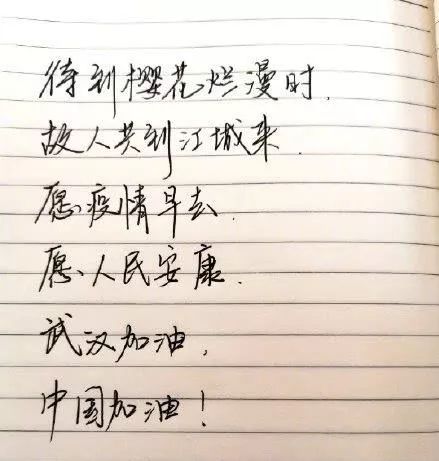 待到樱花烂漫时.
故人共到江城来.
愿疫情早去.
愿人民安康.
武汉加油,
中国加油!